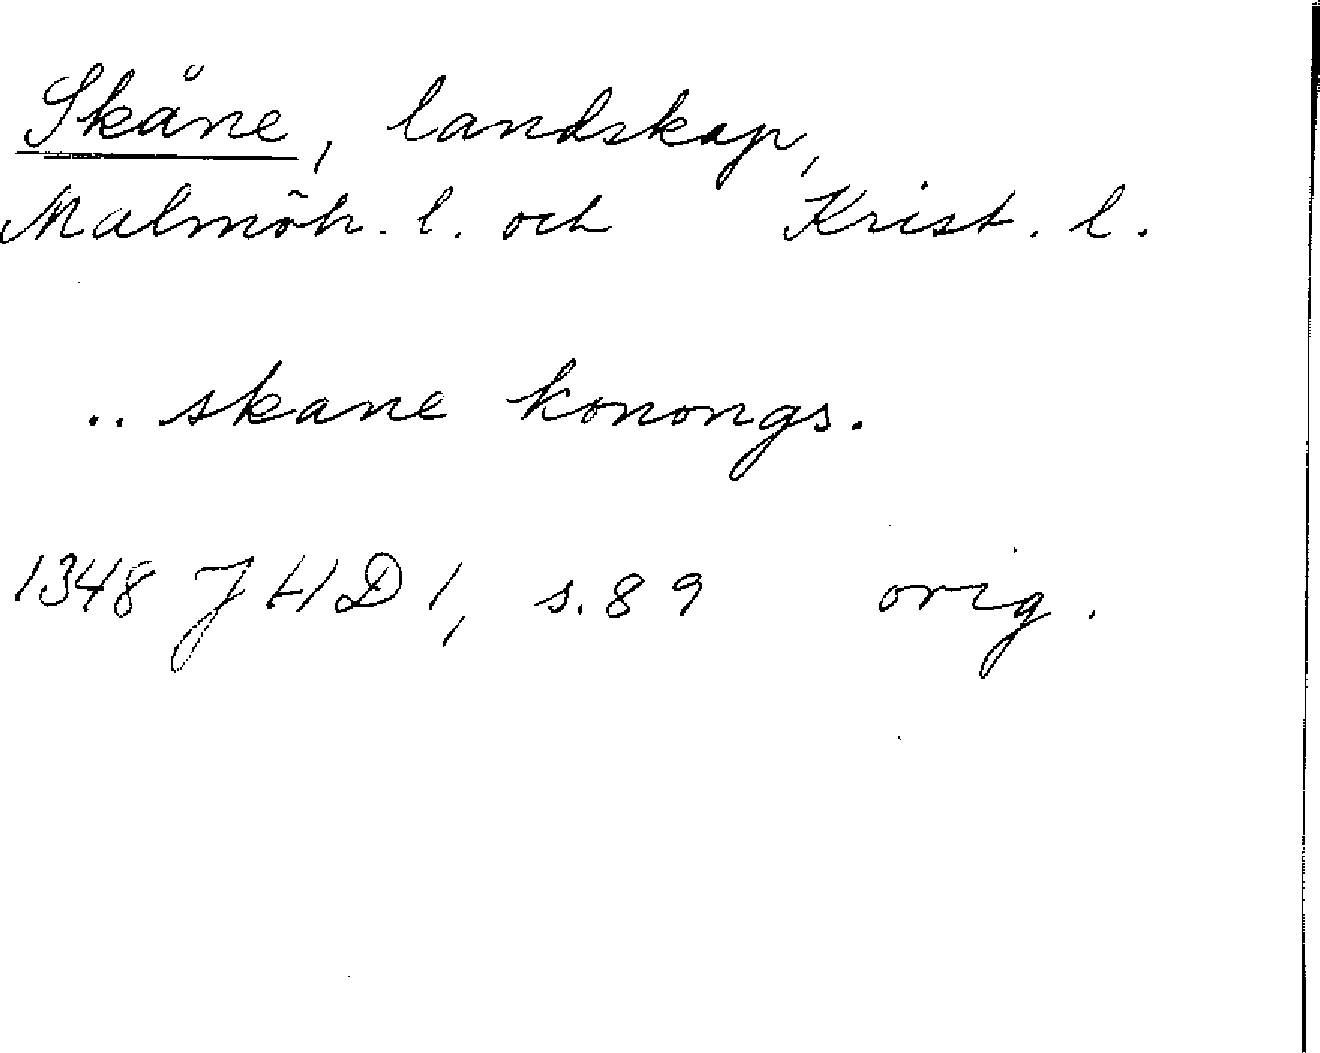 Skåne, landskap,
Malmöh. l. och Krist. l.
.. skane konongs.
1348 JHD 1, s. 89 orig.